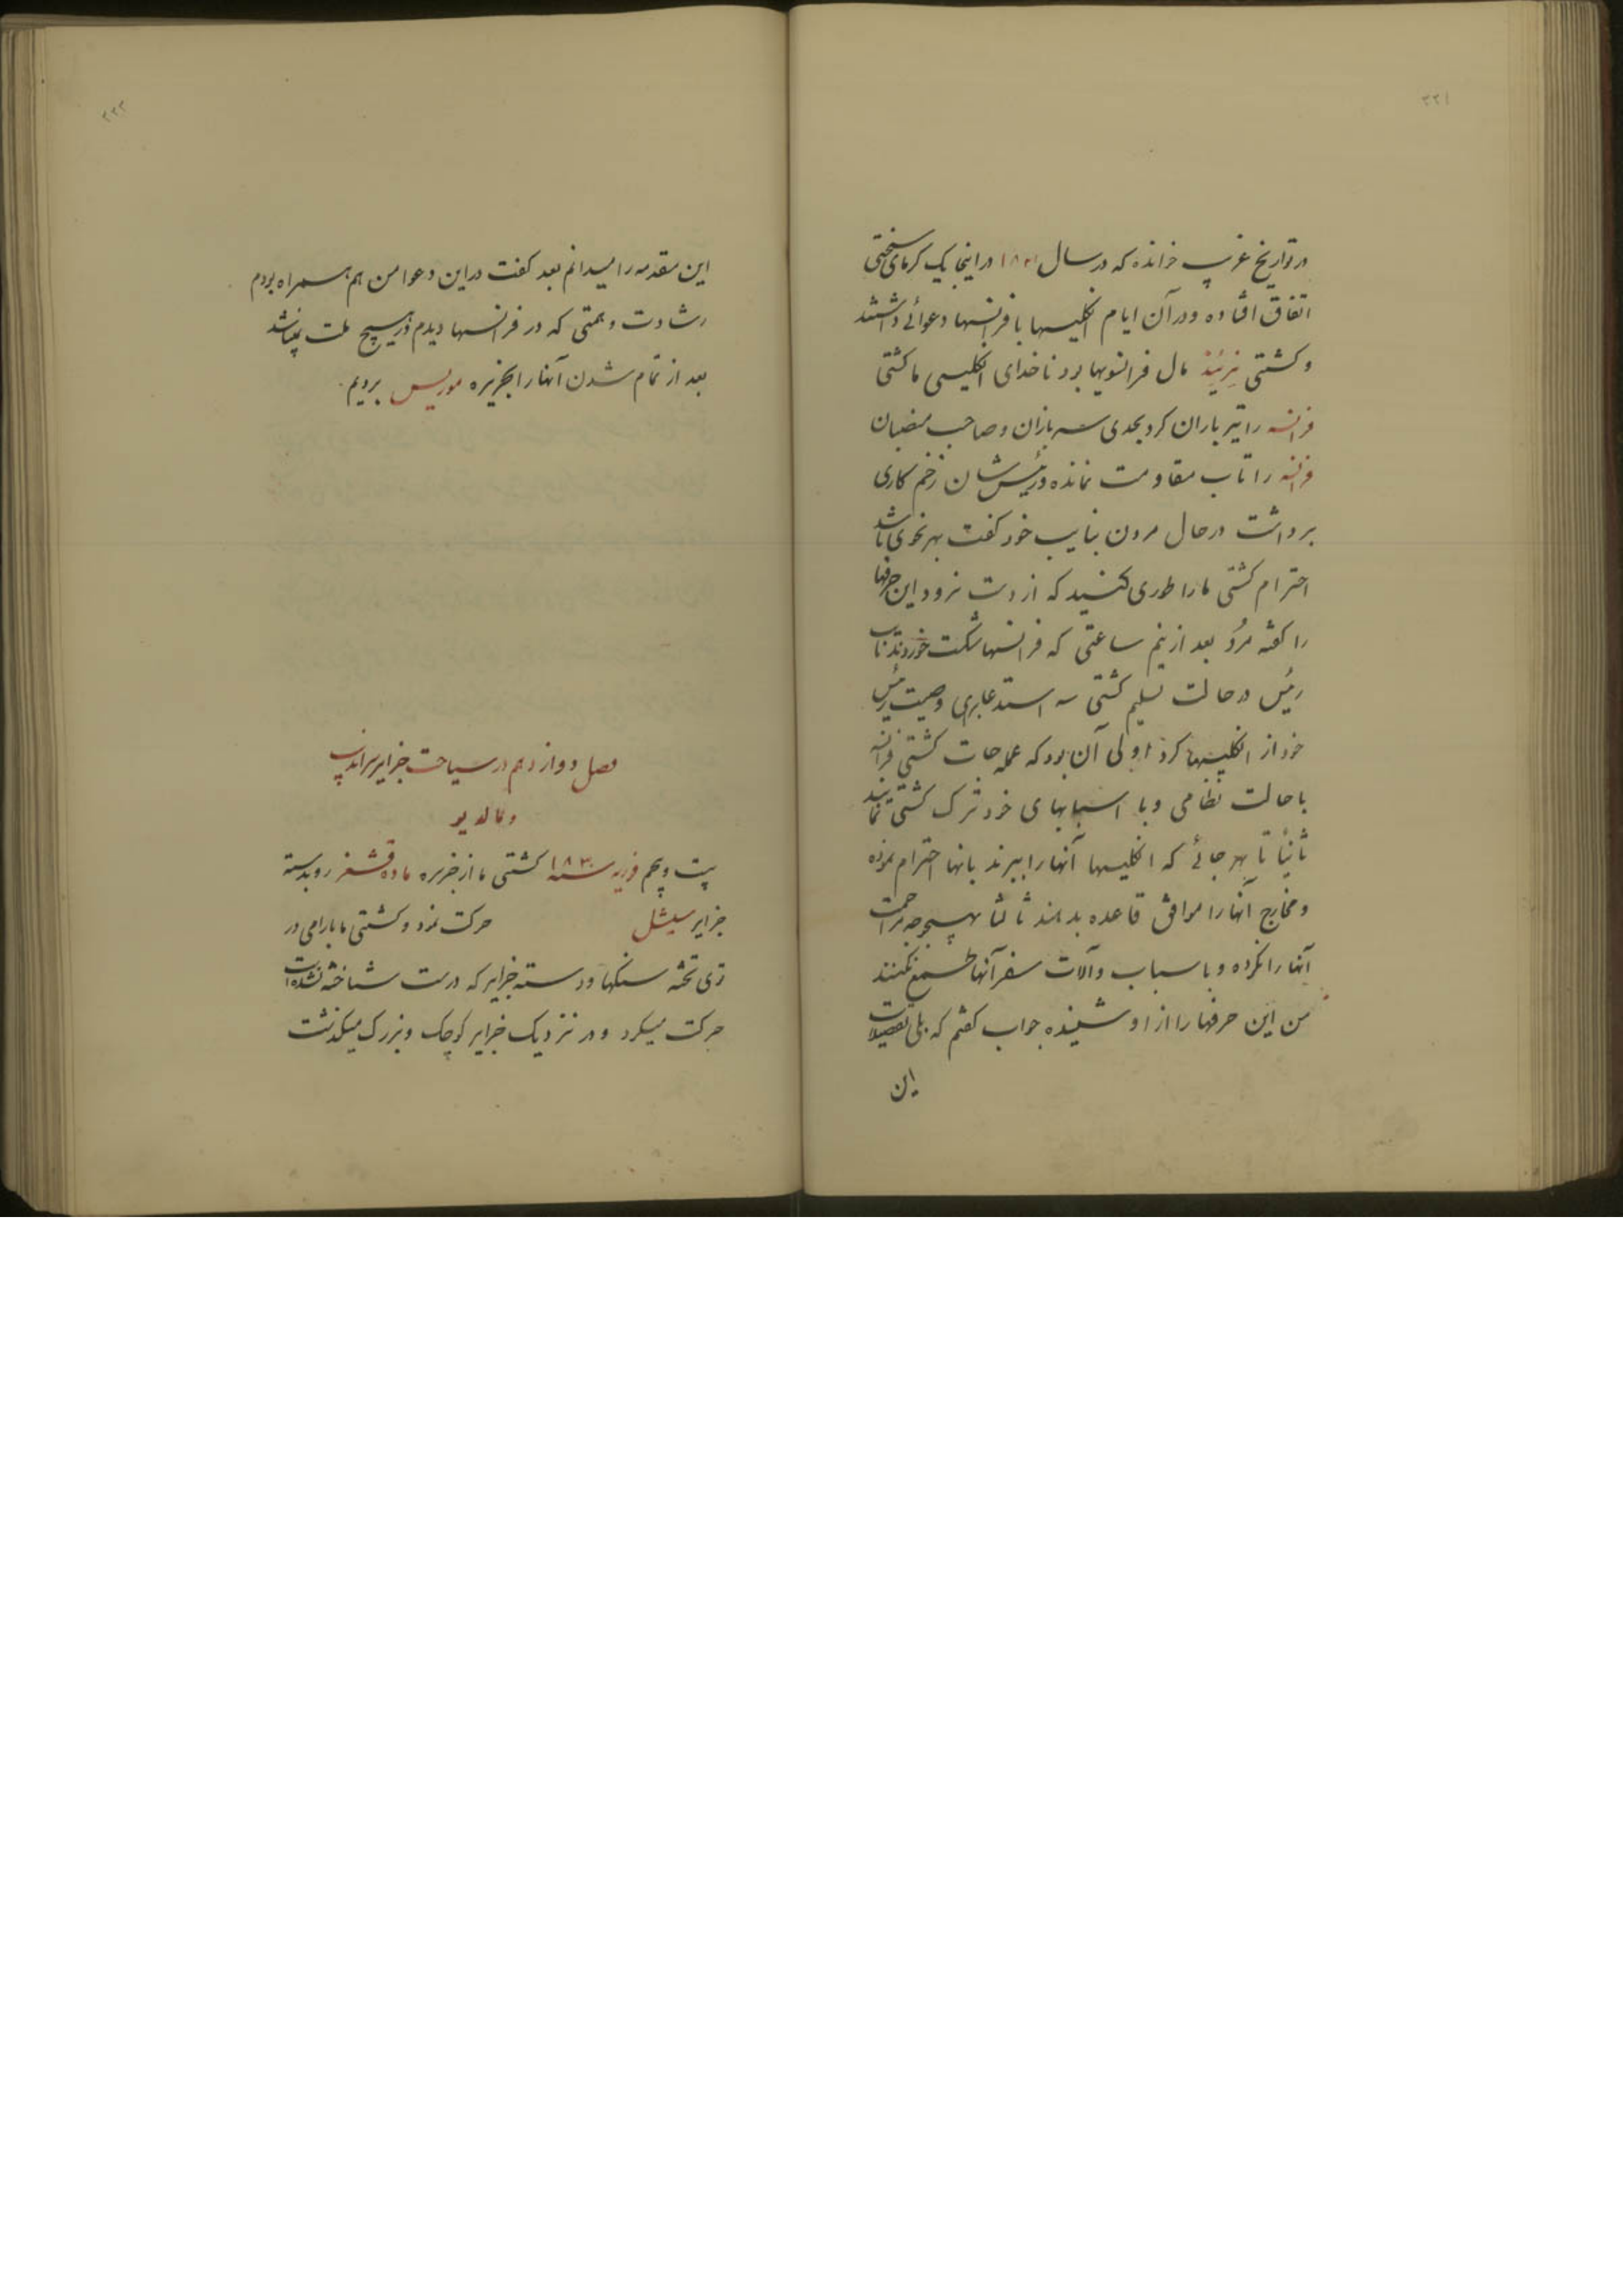 ۳۳۱
در تواریخ غرب خوانده که در سال در اینجا یک گرمای سختی
اتفاق افتاده و در آن ایام انگلیسها با فرانسها دعوائی داشتند
و کشتی مال فرانسویها بود ناخدای انگلیسی ما کشتی
فرانسه را تیر باران کرد بحدی سربازان و صاحب منصبان
فرانسه را تاب مقاومت نمانده و رئیسشان زخم کاری
برداشت در حال مردن بنایب خود گفت بهر نحوی باشد
احترام کشتی ما را طوری کنید که از دست نرود این حرفها
را گفته مُرد بعد از نیم ساعتی که فرانسها شکست خوردند نایب
رئیس در حالت تسلیم کشتی سه استدعا برای وصیت رئیس
خود از انگلیسها کرد اولی آن بود که عمله جات کشتی فرانسه
با حالت نظامی و با اسبابهای خود ترک کشتی نمایند
ثانیاً تا بهر جائی که انگلیسها آنها را ببرند بانها احترام نموده
و مخارج آنها را موافق قاعده بدهند ثالثا بهیچوجه مزاحمت
آنها را نکرده و باسباب و آلات سفر آنها طمع نکنند
من این حرفها را از او شنیده جواب گفتم که بلی تفصیلات
این
۳۳۲
این مقدمه را میدانم بعد گفت در این دعوا من هم همراه بودم
رشادت و همتی که در فرانسها دیدم در هیچ ملت نمیباشد
بعد از تمام شدن آنها را بجزیره موریس بردیم
فصل دوازدهم در سیاحت جزایر سراندیب
و مالدیو
بیست و پنجم فوریه سنه ۱۸۳۰ کشتی ما از جزیره رو بدسته
جزایر سیشل حرکت نمود و کشتی ما بارامی در
توی تخته سنگها و دسته جزایر که درست شناخته نشده است
حرکت میکرد و در نزدیک جزایر کوچک و بزرگ میگذشت